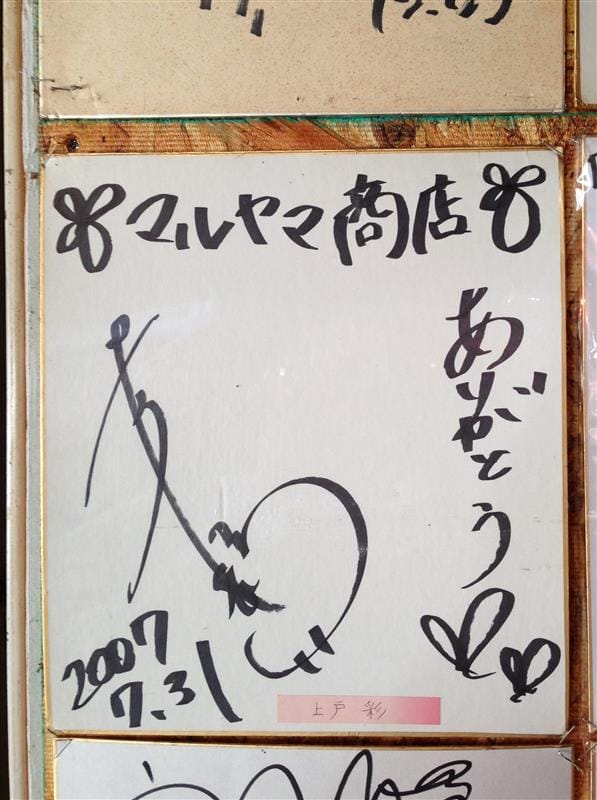 マルヤマ商店
ありがとう
2007
7.31
上戸 彩